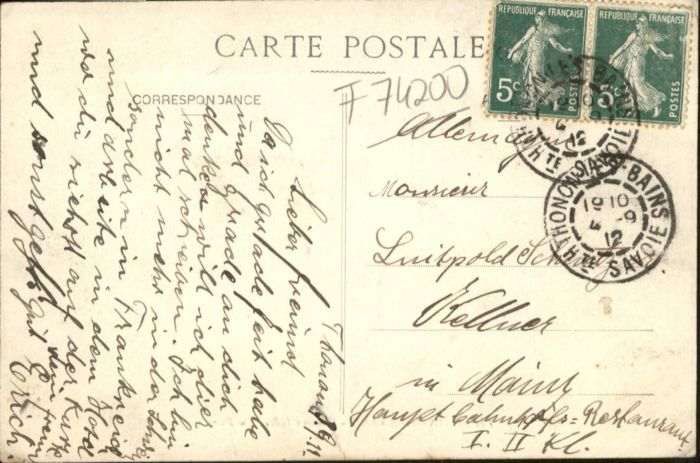 CARTE POSTALE
CORRESPONDANCE
F 74200
RÉPUBLIQUE FRANÇAISE
5c
POSTES
RÉPUBLIQUE FRANÇAISE
5c
POSTES
THONON-LES-BAINS
HTE SAVOIE
19 10
5 -9
12
Allemagne
Monsieur
Luitpold
Kellner
in Mainz
Hauptbahnhofs-Restaurant
I. II Kl.
Thonon
Lieber Freund
Da ich gerade Zeit habe
und grade an dich
denke will ich dir
mal schreiben. Ich bin
nicht mehr in der Schweiz
sondern in Frankreich
und arbeite in dem Hotel
was du siehst auf der Karte
und sonst gehts gut
dein Freund
Erich